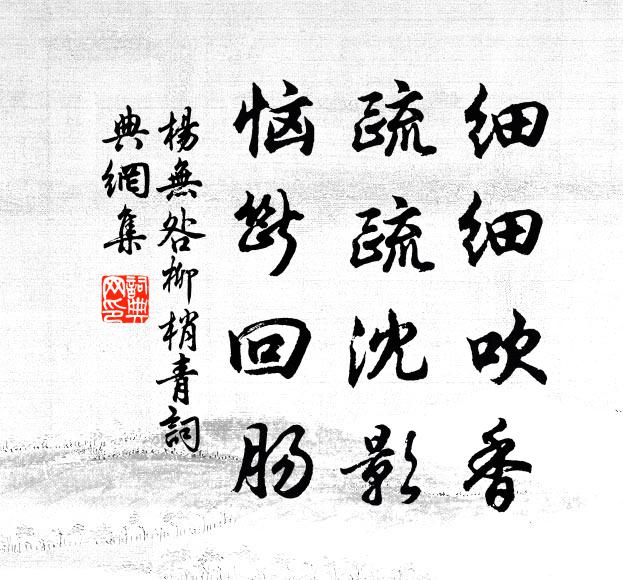 细细吹香
疏疏沈影
恼断回肠
杨无咎柳梢青词
典网集
词典网印